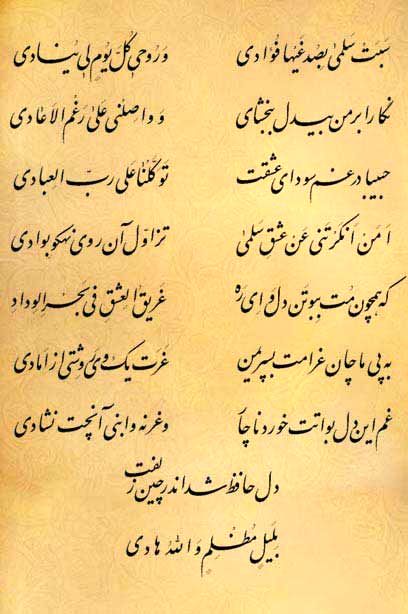 سَبَتْ سَلمیٰ بِصُدغَیها فُؤادی وَ رُوحی کُلَّ یَومٍ لی یُنادی
نگارا بر من بیدل ببخشای وَ واصِلنی عَلیٰ رَغْمِ الاَعادی
حبیبا در غم سودای عشقت تَوَکَّلنا عَلیٰ ربِّ العبادی
اَمَن اَنکَرتَنی عَن عشقِ سَلمیٰ تزاوّل آن روی نهکو بوادی
که همچون مت ببوتن دل و ای ره غریقُ العِشقِ فی بَحرِ الوِدادِ
به پی ماچان غرامت بسپریمن غرت یک وی روشتی از امادی
غم این دل بواتت خورد ناچار وغرنه وابنی آنچت نشادی
دل حافظ شد اندر چین زلفت
بِلَیلٍ مُظلِمٍ وَ اللهُ هادی